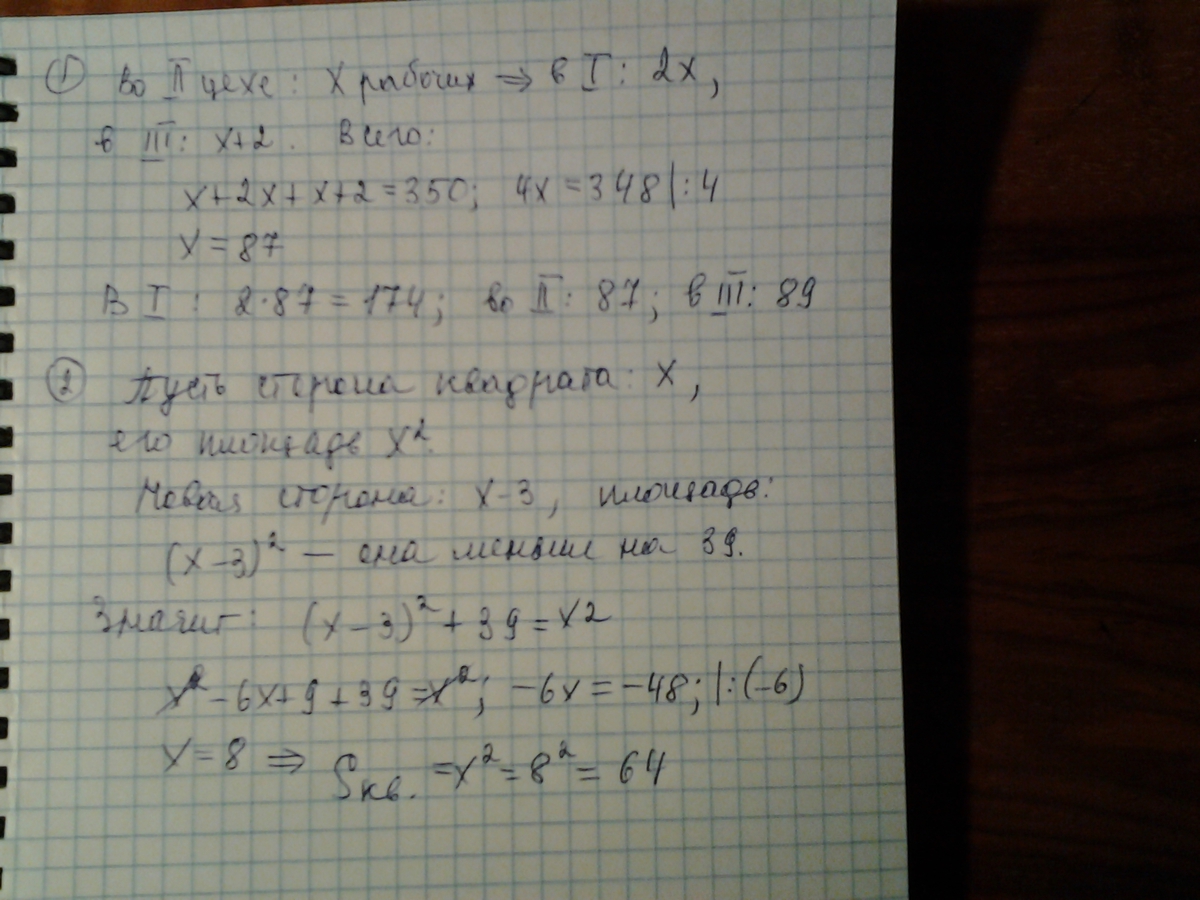 ① Во II цехе: х рабочих ⇒ в I: 2х,
в III: х+2. Всего:
х+2х+х+2=350; 4х=348|:4
х=87
В I: 2·87=174; во II: 87; в III: 89
② Пусть сторона квадрата: х,
его площадь х².
Новая сторона: х-3, площадь:
(х-3)² — она меньше на 39.
Значит: (х-3)²+39=х2
х²-6х+9+39=х²; -6х=-48; |:(-6)
х=8 ⇒ Sкв. =х²=8²=64